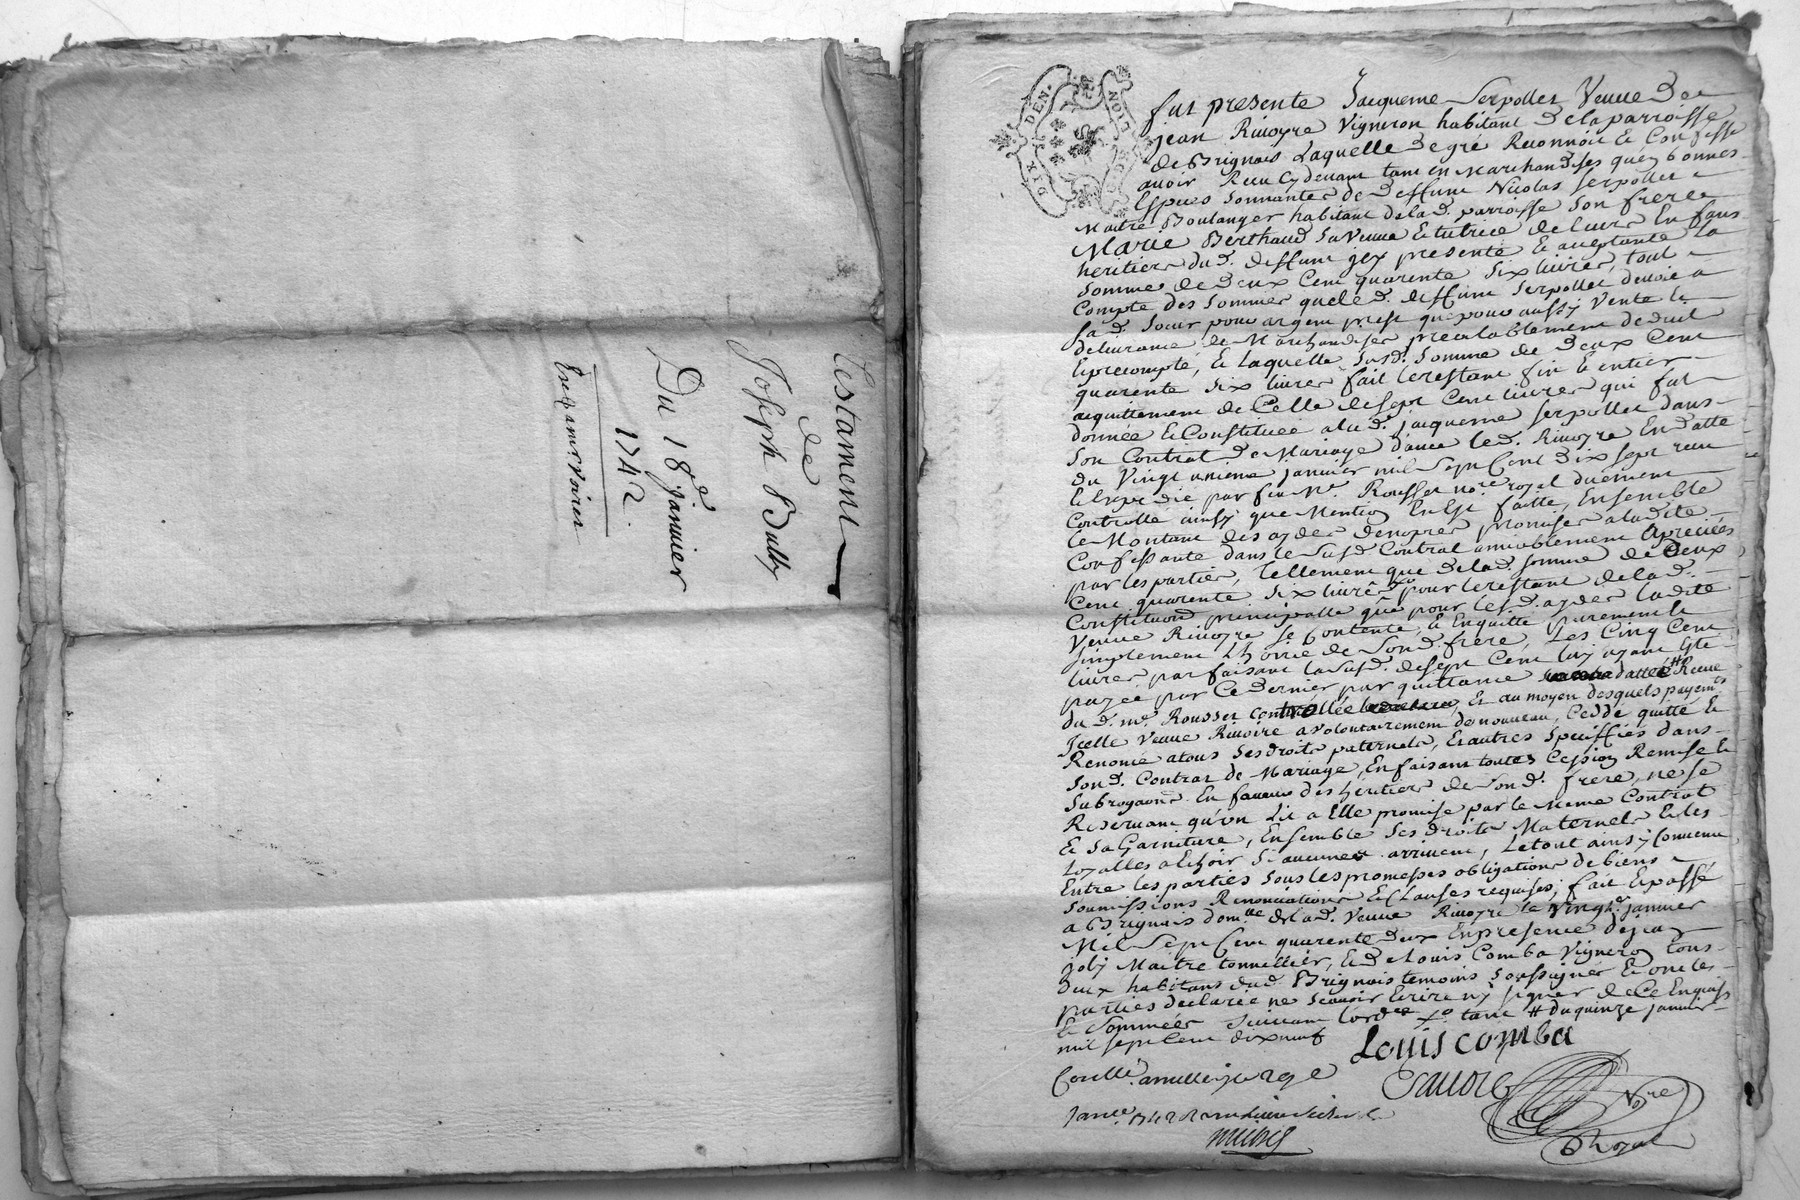 Testament
de
Joseph Bully
Du 18e janvier
1742.
DIX DEN.
LION
fut presente Jacqueme Serpollet Veuve De
jean Rivoyre Vigneron habitant De la parroisse
de Brignais Laquelle De gré Reconnoit Et Confesse
avoir Receu Cydevant tant en Marchandises qu'en bonnes
Espèces sonnantes de Deffunt Nicolas Serpollet
Maitre Boulanger habitant de lad. parroisse son frere
Marie Berthaud sa Veuve Et tutrice de leurs Enfans
heritiers dud. deffunt jcy presente Et aceptante La
somme de Deux Cent quarente Six livres, tout
Compte des sommes que led. deffunt Serpollet devoit a
sad. soeur pour argent presé que pour aussy Vente Et
delivrance de Marchandises prealablement deduit
Et precompté, Et Laquelle susd. somme de Deux Cent
quarente Six livres fait le restant fin Et entier
acquittement de Celle de Sept Cent livres qui fut
donnée Et Constituée a lad. jacqueme Serpollet dans
son Contrat De Mariage d'avec led. Rivoyre En datte
du Vingt unieme janvier mil Sept Cent Dix Sept receu
Et Expedié par feu Me. Rousset nore. royal duement
Controllé ainsy que Mention En Est faitte, Ensemble
le Montant des aydes de nopces promises a la dite
Confessante dans le susd. Contrat amiablement apreciées
par les parties, tellement que De lad. somme de Deux
Cent quarente Six livres pour le restant de lad.
Constitution principalle que pour lesd. aydes la dite
Veuve Rivoyre se Contente Et En quitte purement Et
simplement L'hoirie de sond. frere, Les Cinq Cent
livres parfaisant la susd. de Sept Cent luy ayant Eté
payée par Ce Dernier par quittance dattée # Receue
du d. me. Rousset controllée Et au moyen desquels payemts
Icelle Veuve Rivoire a volontairement de nouveau, Cedé quitté Et
Renoncé a tous ses droits paternels, Et autres Speciffiés dans
sond. Contrat de Mariage, En faisant toutes Cession Remise Et
subrogation En faveur des heritiers de sond. frere, ne se
Reservant qu'un Lit a Elle promise par le Meme Contrat
Et sa Garniture, Ensemble ses droits Maternels Et les
Loyalles a Echoir Si aucunes arrivent, Le tout ainsy Convenu
Entre les parties sous les promesses obligations de biens
soumissions Renonciations Et Clauses requises; fait Et passé
a Brignais domlle de lad. Veuve Rivoyre le Vingt janvier
Mil Sept Cent quarente deux En presence de jean
joly Maitre tonnellier, Et De Louis Comba Vigneron tous
Deux habitans dud. Brignais temoins soussignés Et ont les
parties declarée ne scavoir Ecrire ny signer de Ce Enquis
Et Sommées suivant l'orde Xo tant # du quinze janvier
mil Sept Cent dix neuf
Louis comba